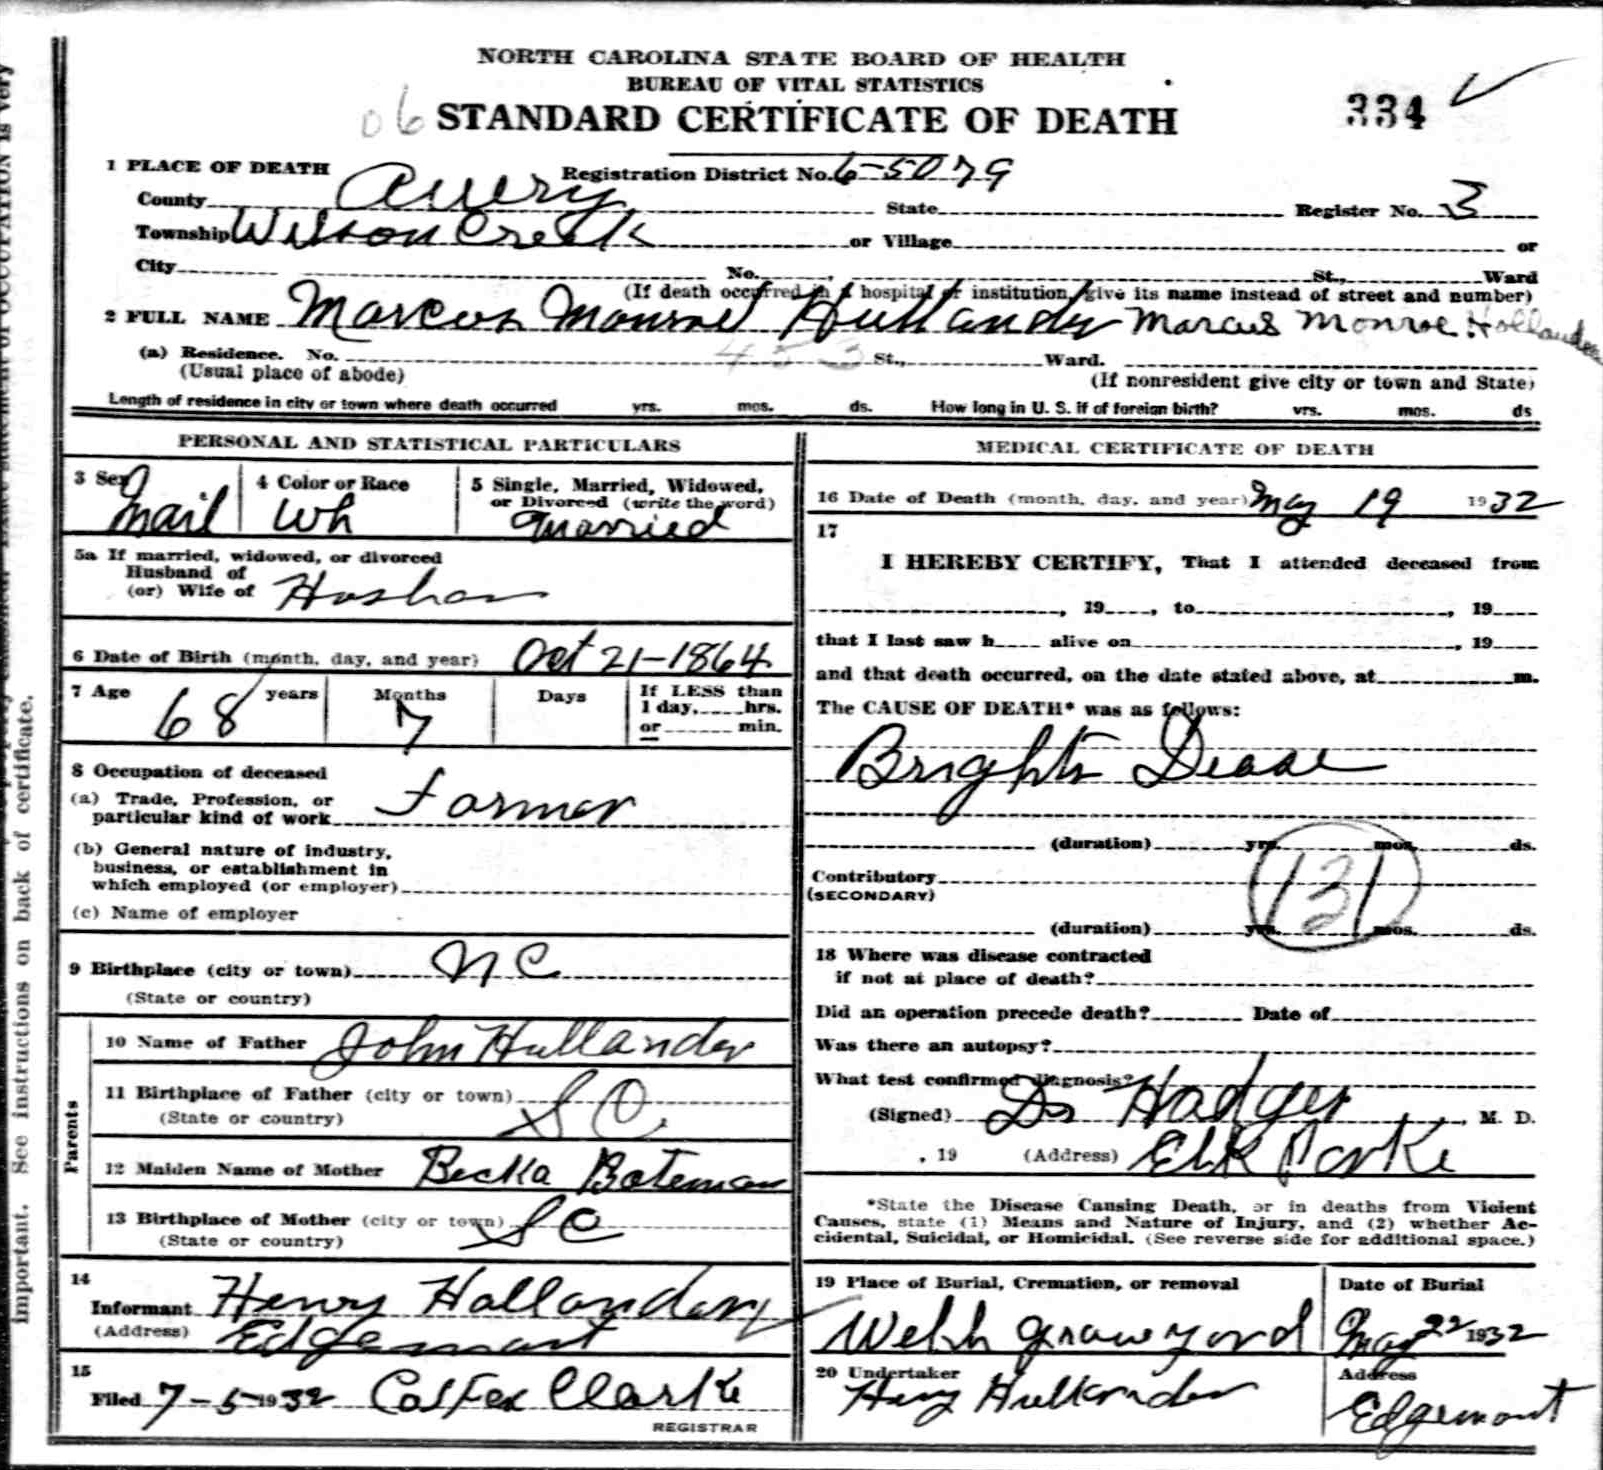 NORTH CAROLINA STATE BOARD OF HEALTH
BUREAU OF VITAL STATISTICS
06 STANDARD CERTIFICATE OF DEATH 334
1 PLACE OF DEATH Registration District No. 6-5079
County Avery State Register No. 3
Township Wilson Creek or Village or
City No. St., Ward
(If death occurred in a hospital or institution, give its name instead of street and number)
2 FULL NAME Marcus Monroe Hullander Marcus Monroe Hollander
(a) Residence. No. 453 St., Ward.
(Usual place of abode) (If nonresident give city or town and State)
Length of residence in city or town where death occurred yrs. mos. ds. How long in U. S. if of foreign birth? yrs. mos. ds
PERSONAL AND STATISTICAL PARTICULARS
3 Sex 4 Color or Race 5 Single, Married, Widowed,
or Divorced (write the word)
Mail Wh Married
5a If married, widowed, or divorced
Husband of
(or) Wife of
6 Date of Birth (month, day, and year) Oct 21-1864
7 Age years Months Days If LESS than
1 day, hrs.
68 7 or min.
8 Occupation of deceased
(a) Trade, Profession, or
particular kind of work Farmer
(b) General nature of industry,
business, or establishment in
which employed (or employer)
(c) Name of employer
9 Birthplace (city or town) N C
(State or country)
Parents
10 Name of Father John Hullander
11 Birthplace of Father (city or town) S C
(State or country)
12 Maiden Name of Mother Becka Bateman
13 Birthplace of Mother (city or town) S C
(State or country)
14
Informant Henry Hollander
(Address) Edgemont
15
Filed 7-5 1932 Colfex Clarke
REGISTRAR
MEDICAL CERTIFICATE OF DEATH
16 Date of Death (month, day, and year) May 19 1932
17
I HEREBY CERTIFY, That I attended deceased from
, 19 , to , 19
that I last saw h alive on , 19
and that death occurred, on the date stated above, at m.
The CAUSE OF DEATH* was as follows:
Brights Dease
(duration) yrs. mos. ds.
131
Contributory
(SECONDARY)
(duration) yrs. mos. ds.
18 Where was disease contracted
if not at place of death?
Did an operation precede death? Date of
Was there an autopsy?
What test confirmed diagnosis?
(Signed) Dr Hodges , M. D.
, 19 (Address) Elk Parke
*State the Disease Causing Death, or in deaths from Violent
Causes, state (1) Means and Nature of Injury, and (2) whether Ac-
cidental, Suicidal, or Homicidal. (See reverse side for additional space.)
19 Place of Burial, Cremation, or removal Date of Burial
Welch graveyard May 22 1932
20 Undertaker Address
Henry Hullander Edgemont
important. See instructions on back of certificate.